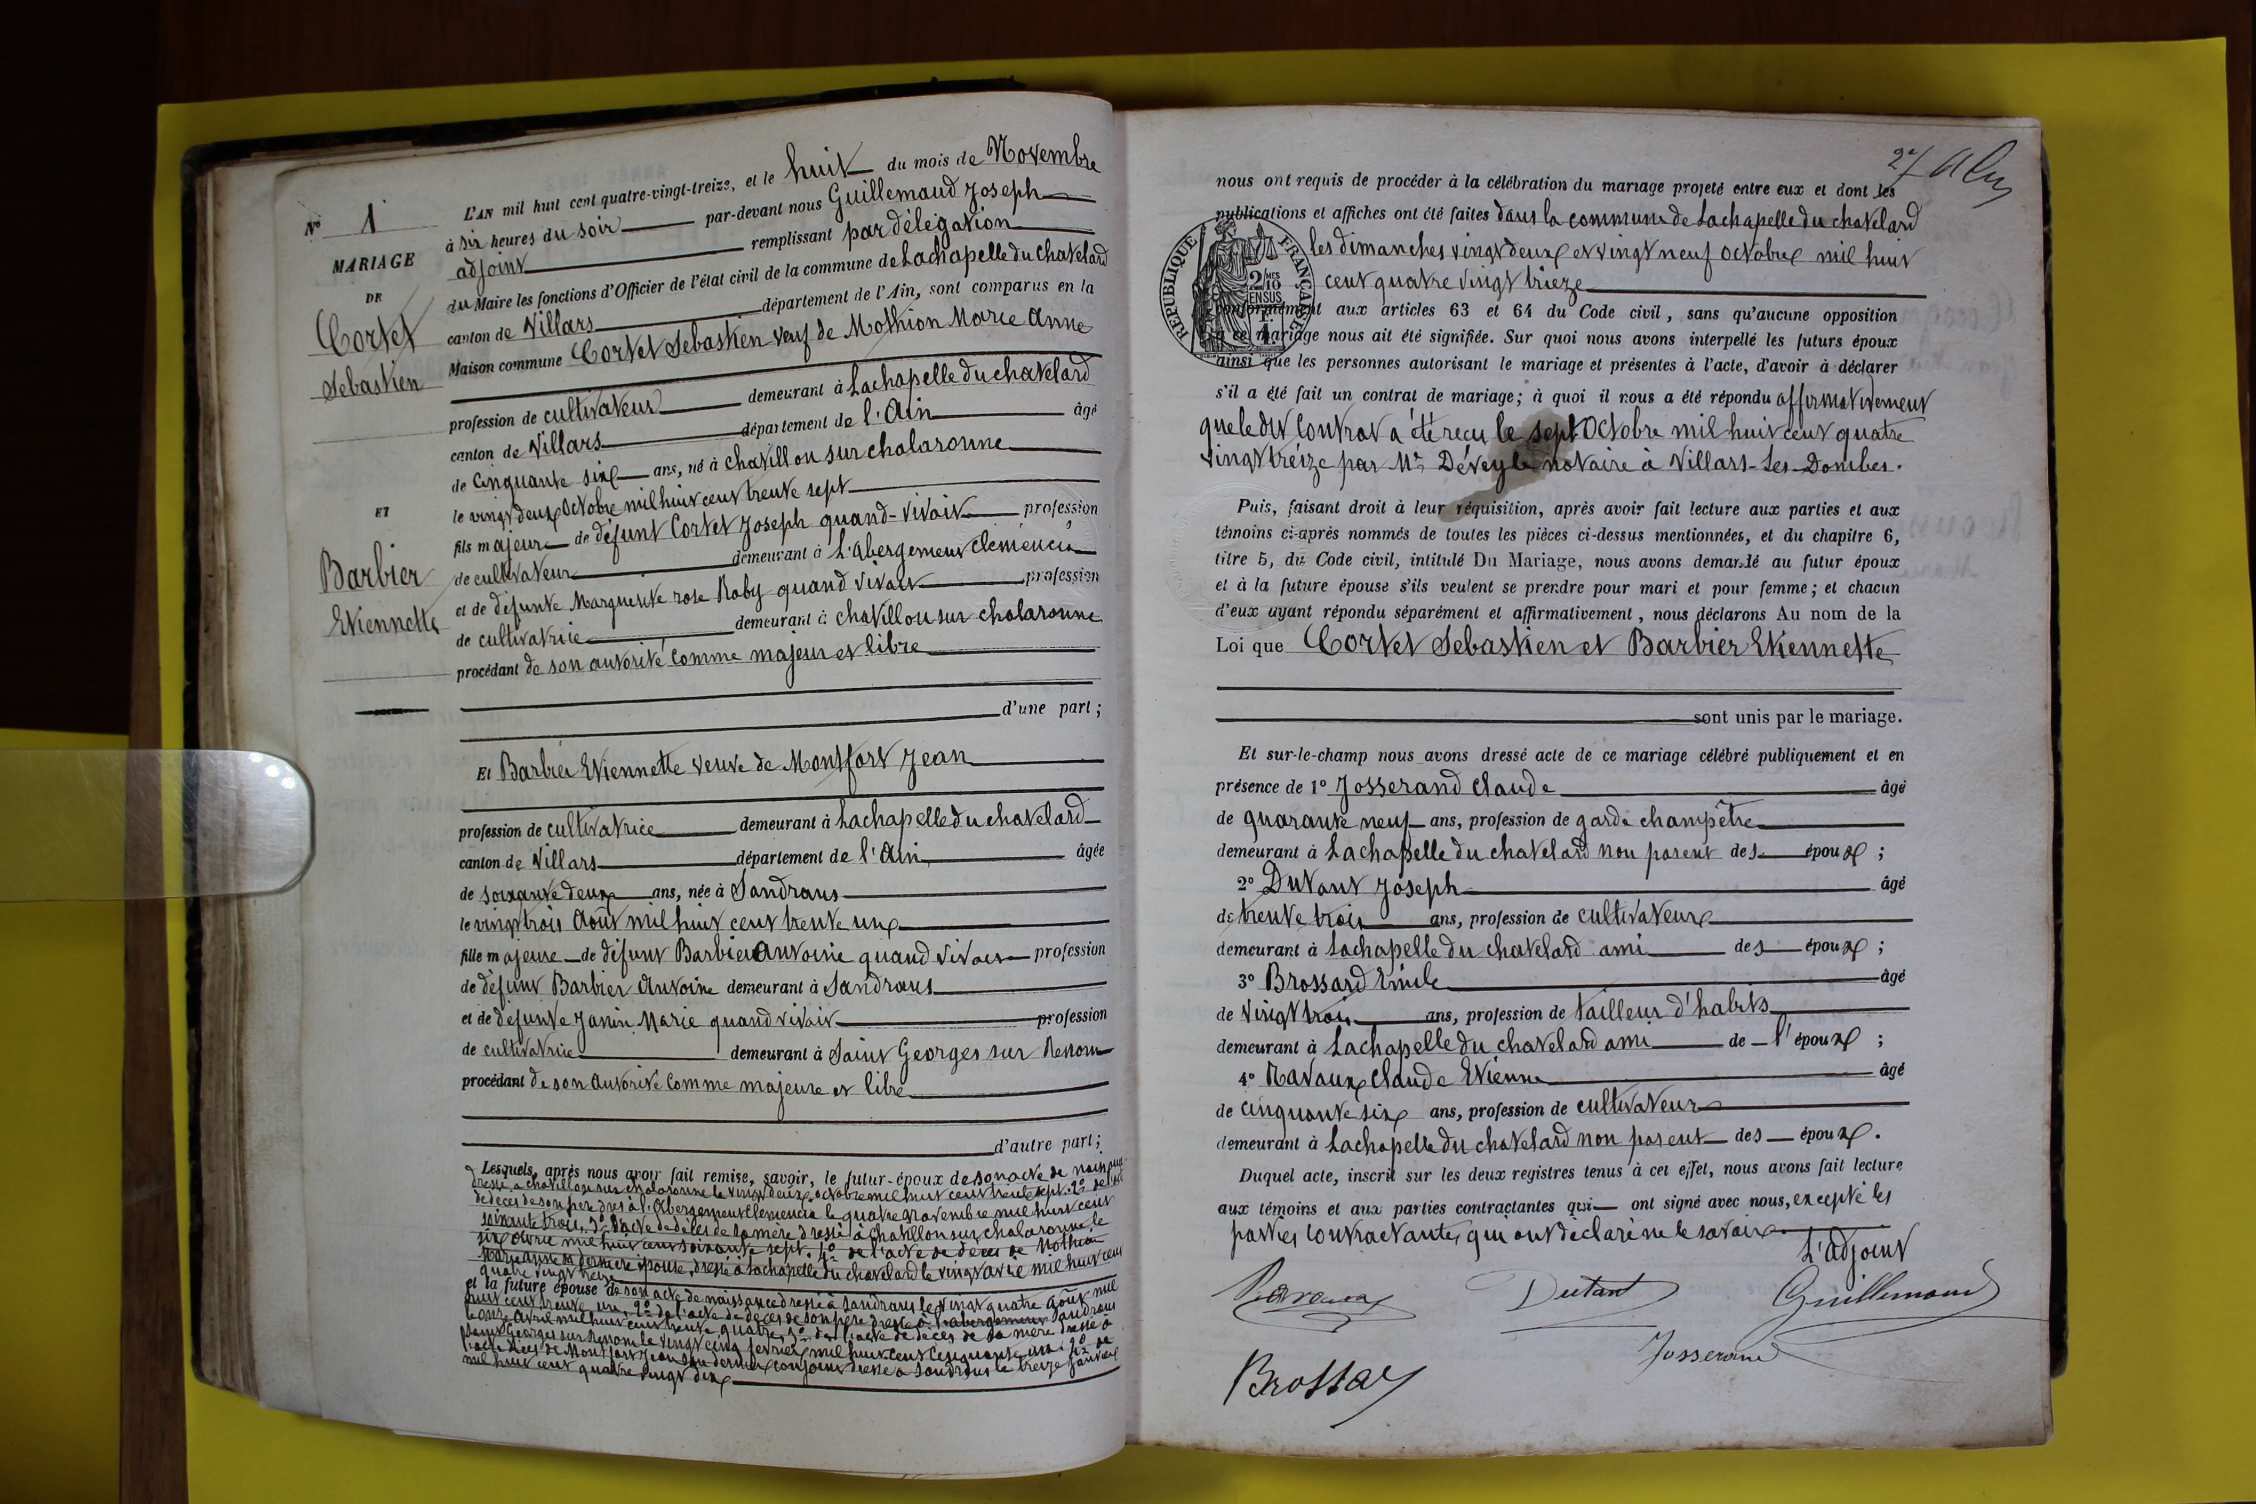 L'AN mil huit cent quatre-vingt-treize, et le huit du mois de Novembre
à six heures du soir par-devant nous Guillemaud Joseph
adjoint remplissant par délégation
du Maire les fonctions d'Officier de l'état civil de la commune de Lachapelle du chatelard
canton de Villars département de l'Ain, sont comparus en la
Maison commune Cortet Sebastien veuf de Mothion Marie Anne
profession de cultivateur demeurant à Lachapelle du chatelard
canton de Villars département de l'Ain âgé
de Cinquante six ans, né à Chatillon sur chalaronne
le vingt deux Octobre mil huit cent trente sept
fils majeur de défunt Cortet Joseph quand-vivait profession
de cultivateur demeurant à L'Abergement Clémencia
et de défunte Marguerite rose Raby quand vivait profession
de cultivatrice demeurant à chatillon sur chalaronne
procédant de son autorité comme majeur et libre
d'une part;
Et Barbier Etiennette veuve de Montfort Jean
profession de cultivatrice demeurant à Lachapelle du chatelard
canton de Villars département de l'Ain âgée
de soixante deux ans, née à Sandrans
le vingt trois Août mil huit cent trente un
fille majeure de défunt Barbier Antoine quand vivait profession
de défunt Barbier Antoine demeurant à Sandrans
et de défunte Janin Marie quand vivait profession
de cultivatrice demeurant à Saint Georges sur Renom
procédant de son autorité comme majeure et libre
d'autre part;
Lesquels, après nous avoir fait remise, savoir, le futur-époux de son acte de naissance
dressé à chatillon sur chalaronne le vingt deux octobre mil huit cent trente sept. 2º de
de décès de son père dressé à l'Abergement Clemencia le quatre novembre mil huit cent
soixante trois, 3º l'acte de décès de sa mère dressé à Chatillon sur chalaronne le
six avril mil huit cent soixante sept. 4º de l'acte de décès de Mothion
Marie anne sa dernière épouse, dressé à Lachapelle du chatelard le vingt avril mil huit cent
quatre vingt treize
et la future épouse de son acte de naissance dressé à Sandrans le vingt quatre Août mil
huit cent trente un, 2º de l'acte de décès de son père dressé à Sandrans
le onze Avril mil huit cent trente quatre, 3º de l'acte de décès de sa mère dressé à
Saint Georges sur Renom le vingt cinq fevrier mil huit cent cinquante un. 4º de
l'acte décès de Montfort Jean son dernier conjoint dressé à Sandrans le treize Janvier
mil huit cent quatre vingt dix
Nº 1
MARIAGE
DE
Cortet
Sebastien
ET
Barbier
Etiennette
2e/
nous ont requis de procéder à la célébration du mariage projeté entre eux et dont les
publications et affiches ont été faites dans la commune de Lachapelle du chatelard
les dimanches vingt deux et vingt neuf octobre mil huit
cent quatre vingt trieze
RÉPUBLIQUE FRANÇAISE
2/10 MES
EN SUS
conformément aux articles 63 et 64 du Code civil, sans qu'aucune opposition
à ce mariage nous ait été signifiée. Sur quoi nous avons interpellé les futurs époux
ainsi que les personnes autorisant le mariage et présentes à l'acte, d'avoir à déclarer
s'il a été fait un contrat de mariage; à quoi il nous a été répondu affirmativement
que le dit Contrat a été reçu le sept Octobre mil huit cent quatre
vingt treize par Mr Déveyle notaire à Villars-Les-Dombes.
Puis, faisant droit à leur réquisition, après avoir fait lecture aux parties et aux
témoins ci-après nommés de toutes les pièces ci-dessus mentionnées, et du chapitre 6,
titre 5, du Code civil, intitulé Du Mariage, nous avons demandé au futur époux
et à la future épouse s'ils veulent se prendre pour mari et pour femme; et chacun
d'eux ayant répondu séparément et affirmativement, nous déclarons Au nom de la
Loi que Cortet Sebastien et Barbier Etiennette
sont unis par le mariage.
Et sur-le-champ nous avons dressé acte de ce mariage célébré publiquement et en
présence de 1º Josserand Claude âgé
de quarante neuf ans, profession de garde champêtre
demeurant à Lachapelle du chatelard non parent des époux;
2º Dutant Joseph âgé
de trente trois ans, profession de cultivateur
demeurant à Lachapelle du chatelard ami des époux;
3º Brossard Emile âgé
de vingt trois ans, profession de tailleur d'habits
demeurant à Lachapelle du chatelard ami de l'époux;
4º Ravaux Claude Etienne âgé
de cinquante six ans, profession de cultivateur
demeurant à Lachapelle du chatelard non parent des époux.
Duquel acte, inscrit sur les deux registres tenus à cet effet, nous avons fait lecture
aux témoins et aux parties contractantes qui ont signé avec nous, excepté les
parties contractantes qui ont déclaré ne le savoir
L'adjoint
Dutant
Guillemaud
Josserand
Brossar